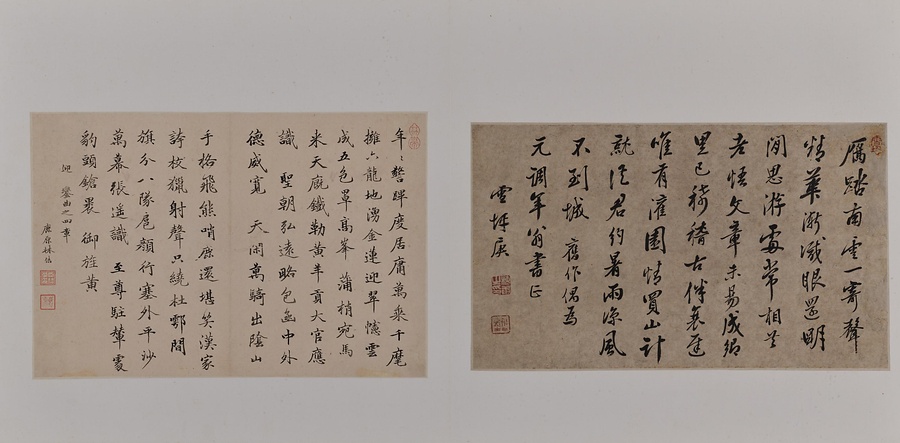 雁踏南雲一寄聲
精華漸減眼還明
閒思游處常相共
老悟文章未易成鄉
里已稀稽古伴衰遲
唯有灌園情買山計
就從君約暑雨凉風
不到城 舊作偶為
元調年翁書正
雪坪庚
年〻警蹕度居庸萬乘千麾
擁六龍地湧金蓮迎翠幰雲
成五色罩高峯 蒲梢宛馬
来天廐鐵勒黄羊貢大官應
識 聖朝弘遠略包函中外
德威寬 天閑萬騎出陰山
手格飛熊哨鹿還堪笑漢家
誇校獵射聲只繞杜鄠間
旗分八隊扈顔行塞外平沙
萬幕張遥識 至尊駐輦處
豹頭鎗裏 御旌黄
迎鑾曲之四章
鹿原林佶